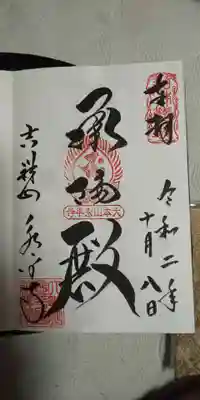 奉拝
令和二年
十月八日
承陽殿
大本山永平寺
吉祥山永平寺